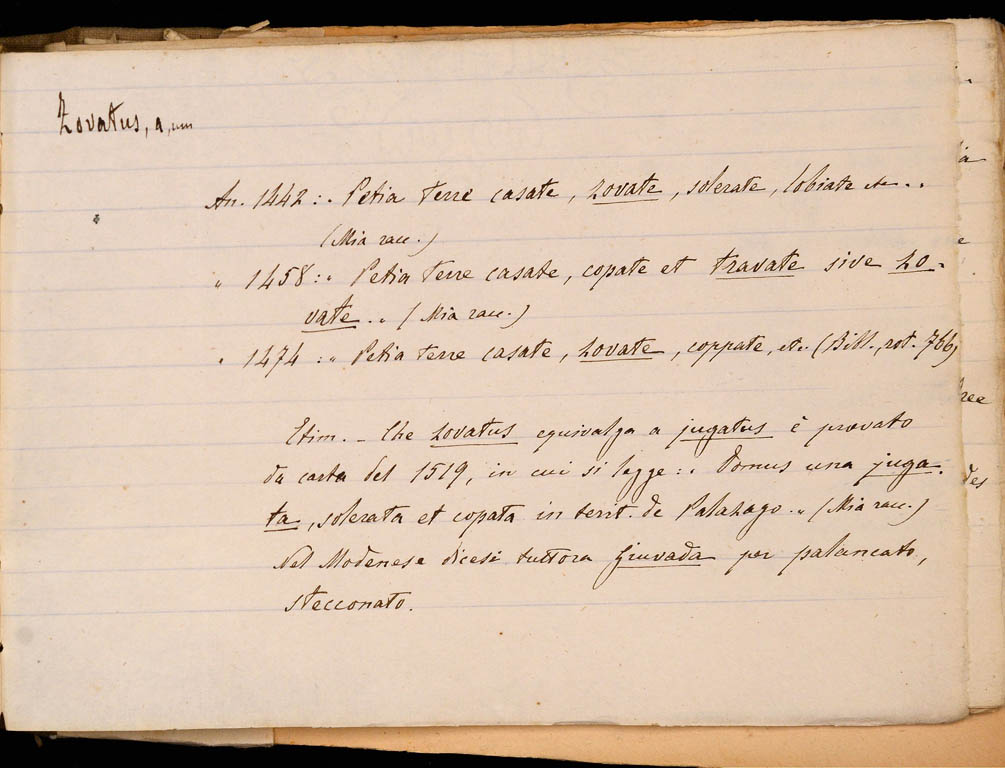 Zovatus, a, um
An. 1442 : „ Petia terre casate, zovate, solerate, lobiate etc. „
(Mia racc.)
„ 1458 : „ Petia terre casate, copate et travate sive zo-
vate. „ (Mia racc.)
„ 1474 : „ Petia terre casate, zovate, coppate, etc. (Bibl., rot. 766)
Etim. – Che zovatus equivalga a jugatus è provato
da carta del 1519, in cui si legge : „ Domus una juga-
ta, solerata et copata in territ. de Palazago. „ (Mia racc.)
Nel Modenese dicesi tuttora Giuvada per palancato,
stecconato.
ia
e
ree
des